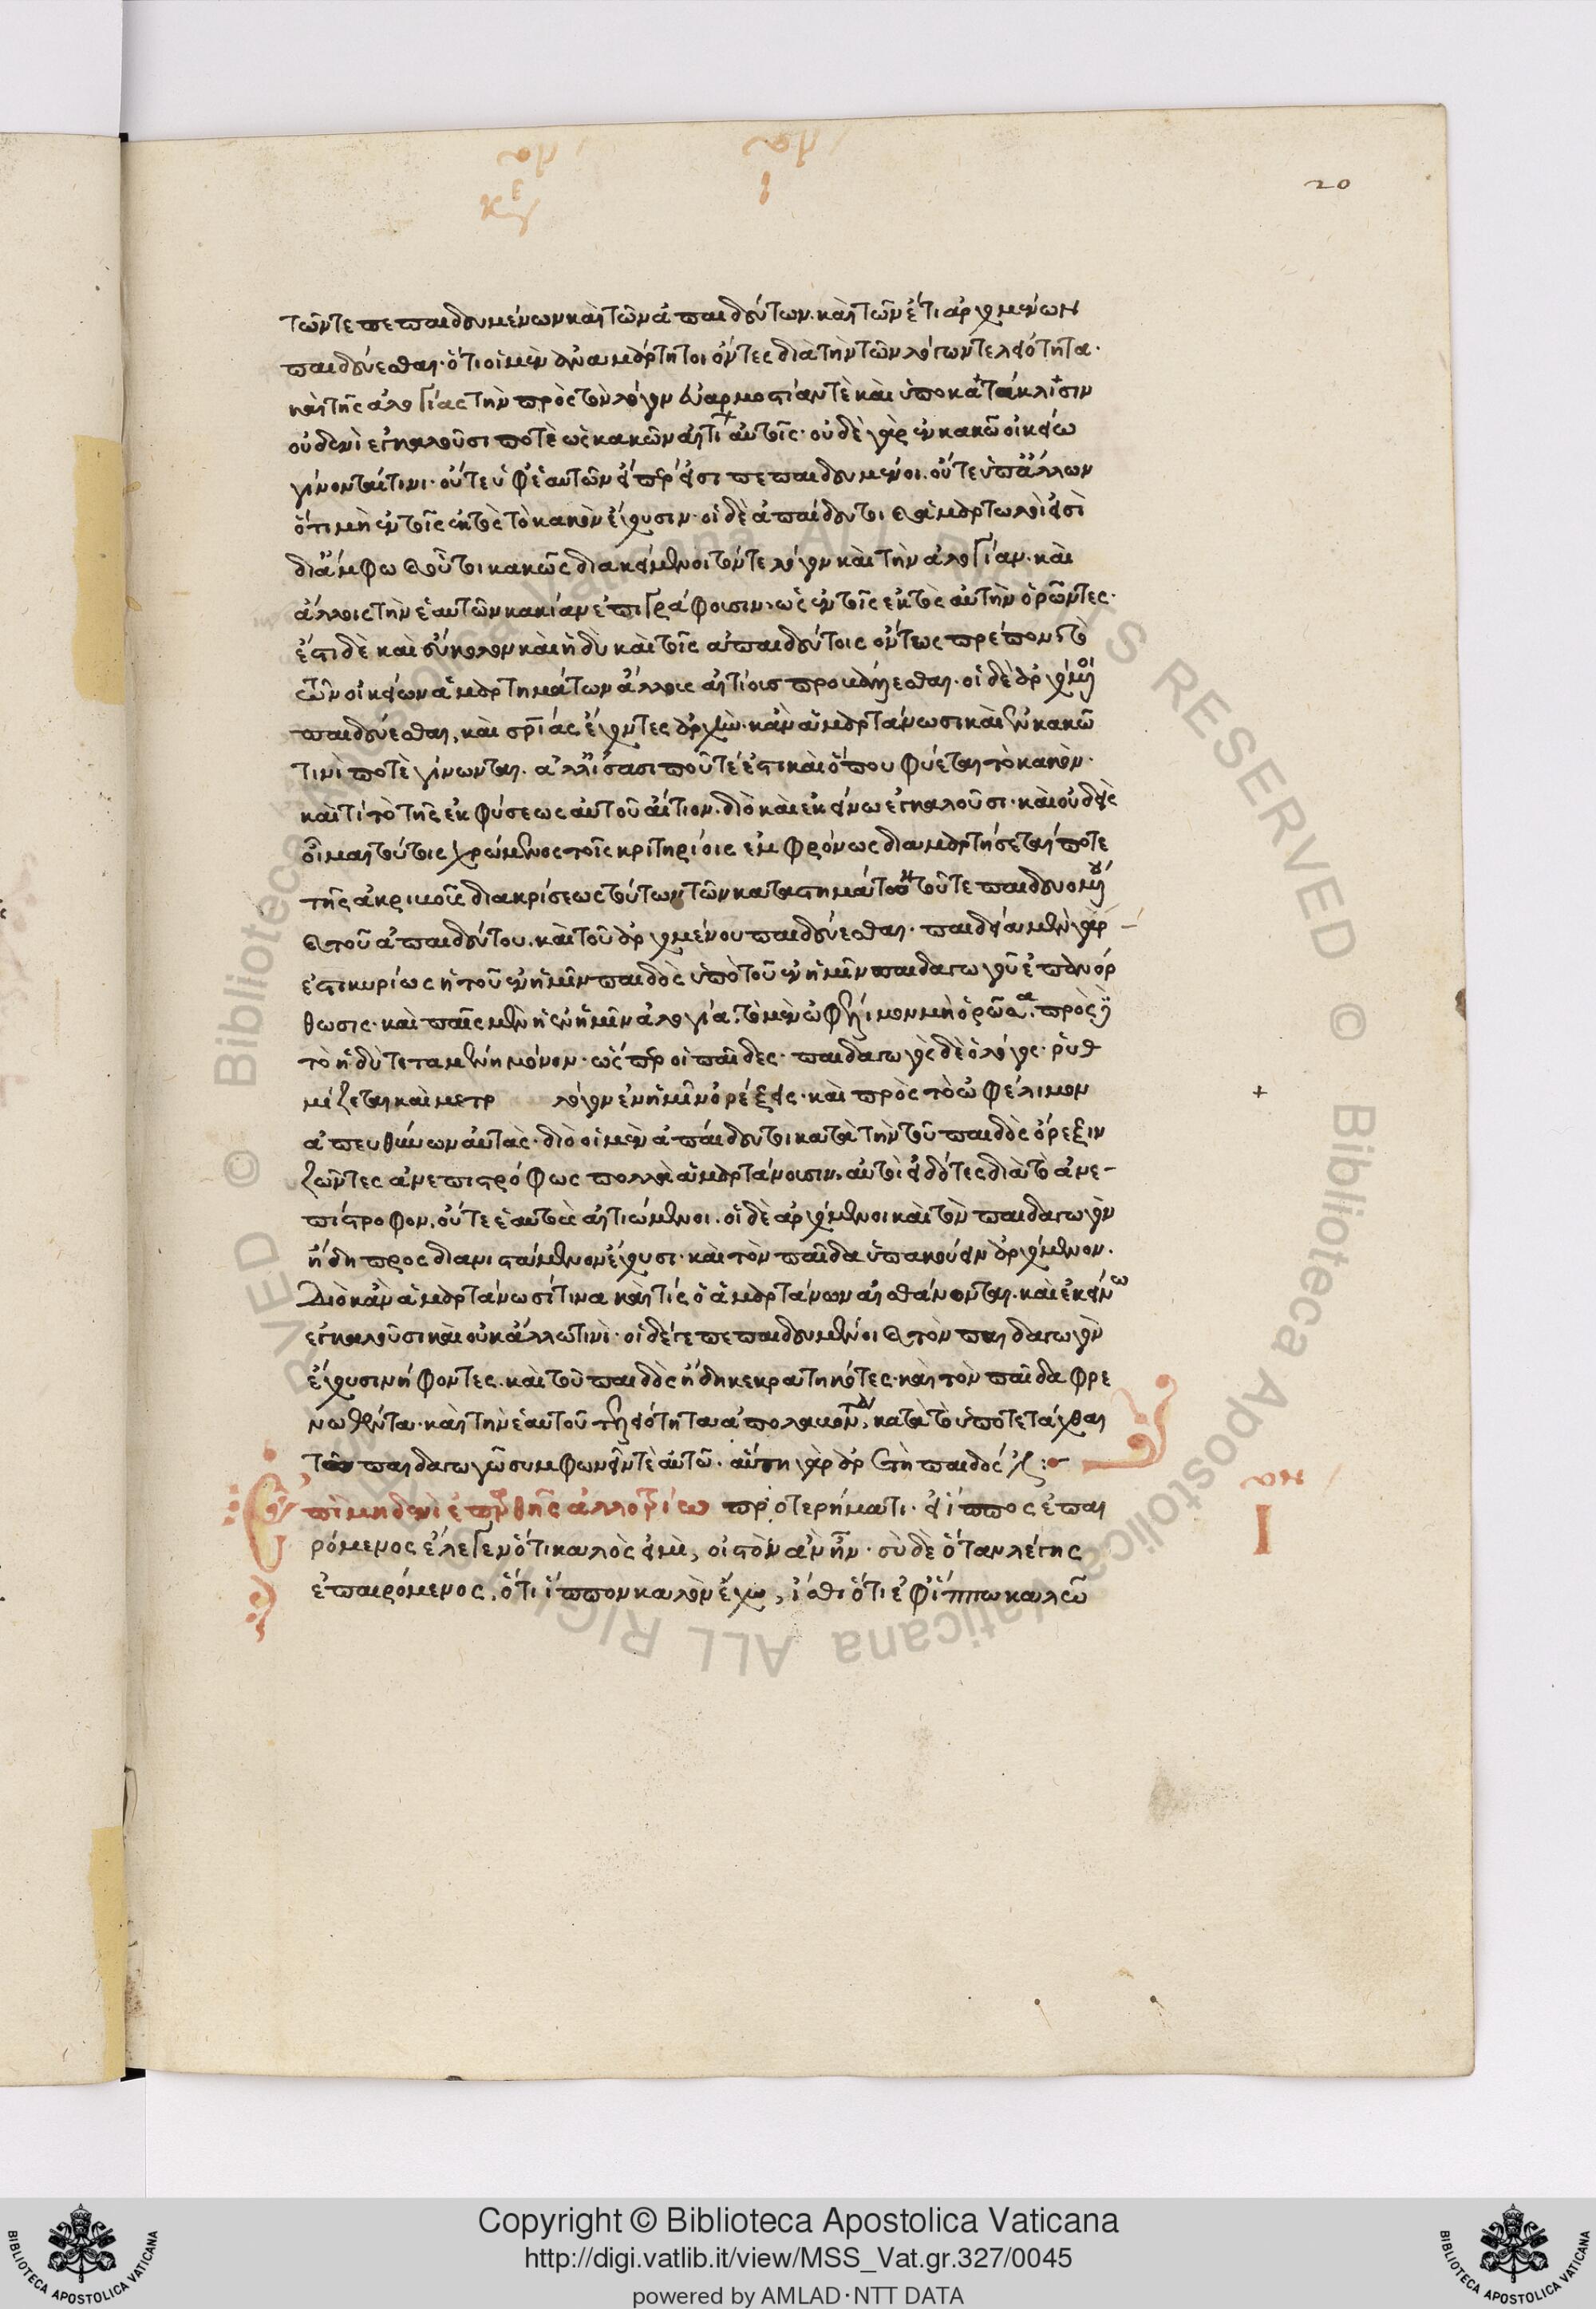 20
τῶν τε πεπαιδευμένων καὶ τῶν ἀπαιδεύτων. καὶ τῶν ἔτι ἀρχομένων
παιδεύεσθαι. ὅτι οἱ μὲν ἀναμάρτητοι ὄντες διὰ τὴν τῶν λόγων τελειότητα.
καὶ τῆς ἀλογίας τὴν πρὸς τὸν λόγον εὐαρμοστίαν τὲ καὶ ὑποκατάκλισιν
οὐδενὶ ἐγκαλοῦσι ποτὲ ὡς κακῶν αἰτίῳ αὐτοῖς. οὐδὲ γὰρ ἐν κακῷ οἰκείω
γίνονταί τινι. οὔτε ὑφ' ἑαυτῶν εἴπερ εἰσι πεπαιδευμένοι. οὔτε ὑπ' ἄλλων
ὅτι μὴ ἐν τοῖς ἐκτὸς τὸ κακὸν ἔχουσιν. οἱ δὲ ἀπαίδευτοι καὶ ἁμαρτωλοὶ εἰσὶ
δι' ἄμφω τοῦτοι κακῶς διακείμενοι τόν τε λόγον καὶ τὴν ἀλογίαν. καὶ
ἄλλοις τὴν ἑαυτῶν κακίαν ἐπιγράφουσιν. ὡς ἐν τοῖς ἐκτὸς αὐτὴν ὁρῶντες.
ἔστι δὲ καὶ εὔκολον καὶ ἡδὺ καὶ τοῖς ἀπαιδεύτοις ὄντως πρέπον. τὸ
τῶν οἰκείων ἁμαρτημάτων ἄλλους αἰτίους προβάλλεσθαι. οἱ δὲ ἀρχόμενοι
παιδεύεσθαι, καὶ σπορίας ἔχοντες ἀρχὴν. κἂν ἁμαρτάνωσι καὶ ἐν κακῷ
τινὶ ποτὲ γίνωνται. ἀλλ' ἴσασι ποῦ τέ ἐστι καὶ ὅπου φύεται τὸ κακὸν.
καὶ τί τὸ τῆς ἐκφύσεως αὐτοῦ αἴτιον. διὸ καὶ ἐκείνω ἐγκαλοῦσι. καὶ οὐδεὶς
οἶμαι τούτοις χρώμενος τοῖς κριτηρίοις ἐμφρόνως διαμαρτήσεταί ποτε
τῆς ἀκριβοῦς διακρίσεως τούτων τῶν καταστημάτων τοῦ τε παιδευομένου
καὶ τοῦ ἀπαιδεύτου. καὶ τοῦ ἀρχομένου παιδεύεσθαι. παιδεία μὲν γὰρ
ἐστι κυρίως ἡ τοῦ ἐν ἡμῖν παιδὸς ὑπὸ τοῦ ἐν ἡμῖν παιδαγωγοῦ ἐπανόρ
θωσις. καὶ παῖς μὲν ἡ ἐν ἡμῖν ἀλογία. τὸ μὲν ὠφέλιμον μὴ ὁρῶσα. πρὸς δὲ
τὸ ἡδὺ τεταμένη μόνον. ὥσπερ οἱ παῖδες. παιδαγωγὸς δὲ ὁ λόγος. ῥυθ
μίζεται καὶ μετρ λόγον ἐν ἡμῖν ὀρέξεις. καὶ πρὸς τὸ ὠφέλιμον
ἀπευθύνων αὐτὰς. διὸ οἱ μὲν ἀπαίδευτοι κατὰ τὴν τοῦ παιδὸς ὄρεξιν
ζῶντες ἀνεπιστρόφως πολλὰ ἁμαρτάνουσιν. αὐτοὶ εἰδότες διὰ τὸ ἀνε-
πίστροφον. οὔτε ἑαυτοὺς αἰτιώμενοι. οἱ δὲ ἀρχόμενοι καὶ τὸν παιδαγωγὸν
ἤδη προσδιανιστάμενον ἔχουσι. καὶ τὸν παῖδα ὑπακούειν ἀρχόμενον.
Διὸ κἂν ἁμαρτάνωσί τινα καὶ τίς ὁ ἁμαρτάνων αἰσθάνονται. καὶ ἐκείνω
ἐγκαλοῦσι καὶ οὐκ ἄλλω τινὶ. οἱ δέ γε πεπαιδευμένοι καὶ τὸν παιδαγωγὸν
ἔχουσι νήφοντες. καὶ τοῦ παιδὸς ἤδη κεκρατηκότες. καὶ τὸν παῖδα φρε
νωθέντα. καὶ τὴν ἑαυτοῦ τελειότητα ἀπολαβόντα, κατὰ τὸ ὑποτετάχθαι
τῷ παιδαγωγῷ συμφωνεῖν τὲ αὐτῷ. αὕτη γὰρ ἀρετὴ παιδός ἐστι:
Ἐπὶ μηδενὶ ἐπαρθῇς ἀλλοτρίω προτερήματι. εἰ ἵππος ἐπαι
ρόμενος ἔλεγεν ὅτι καλὸς εἰμὶ, οἰστὸν ἂν ἦν. σὺ δὲ ὅταν λέγης
ἐπαιρόμενος, ὅτι ἵππον καλὸν ἔχω, ἴσθι ὅτι ἐφ' ἵππω καλῷ
Copyright © Biblioteca Apostolica Vaticana
http://digi.vatlib.it/view/MSS_Vat.gr.327/0045
powered by AMLAD·NTT DATA